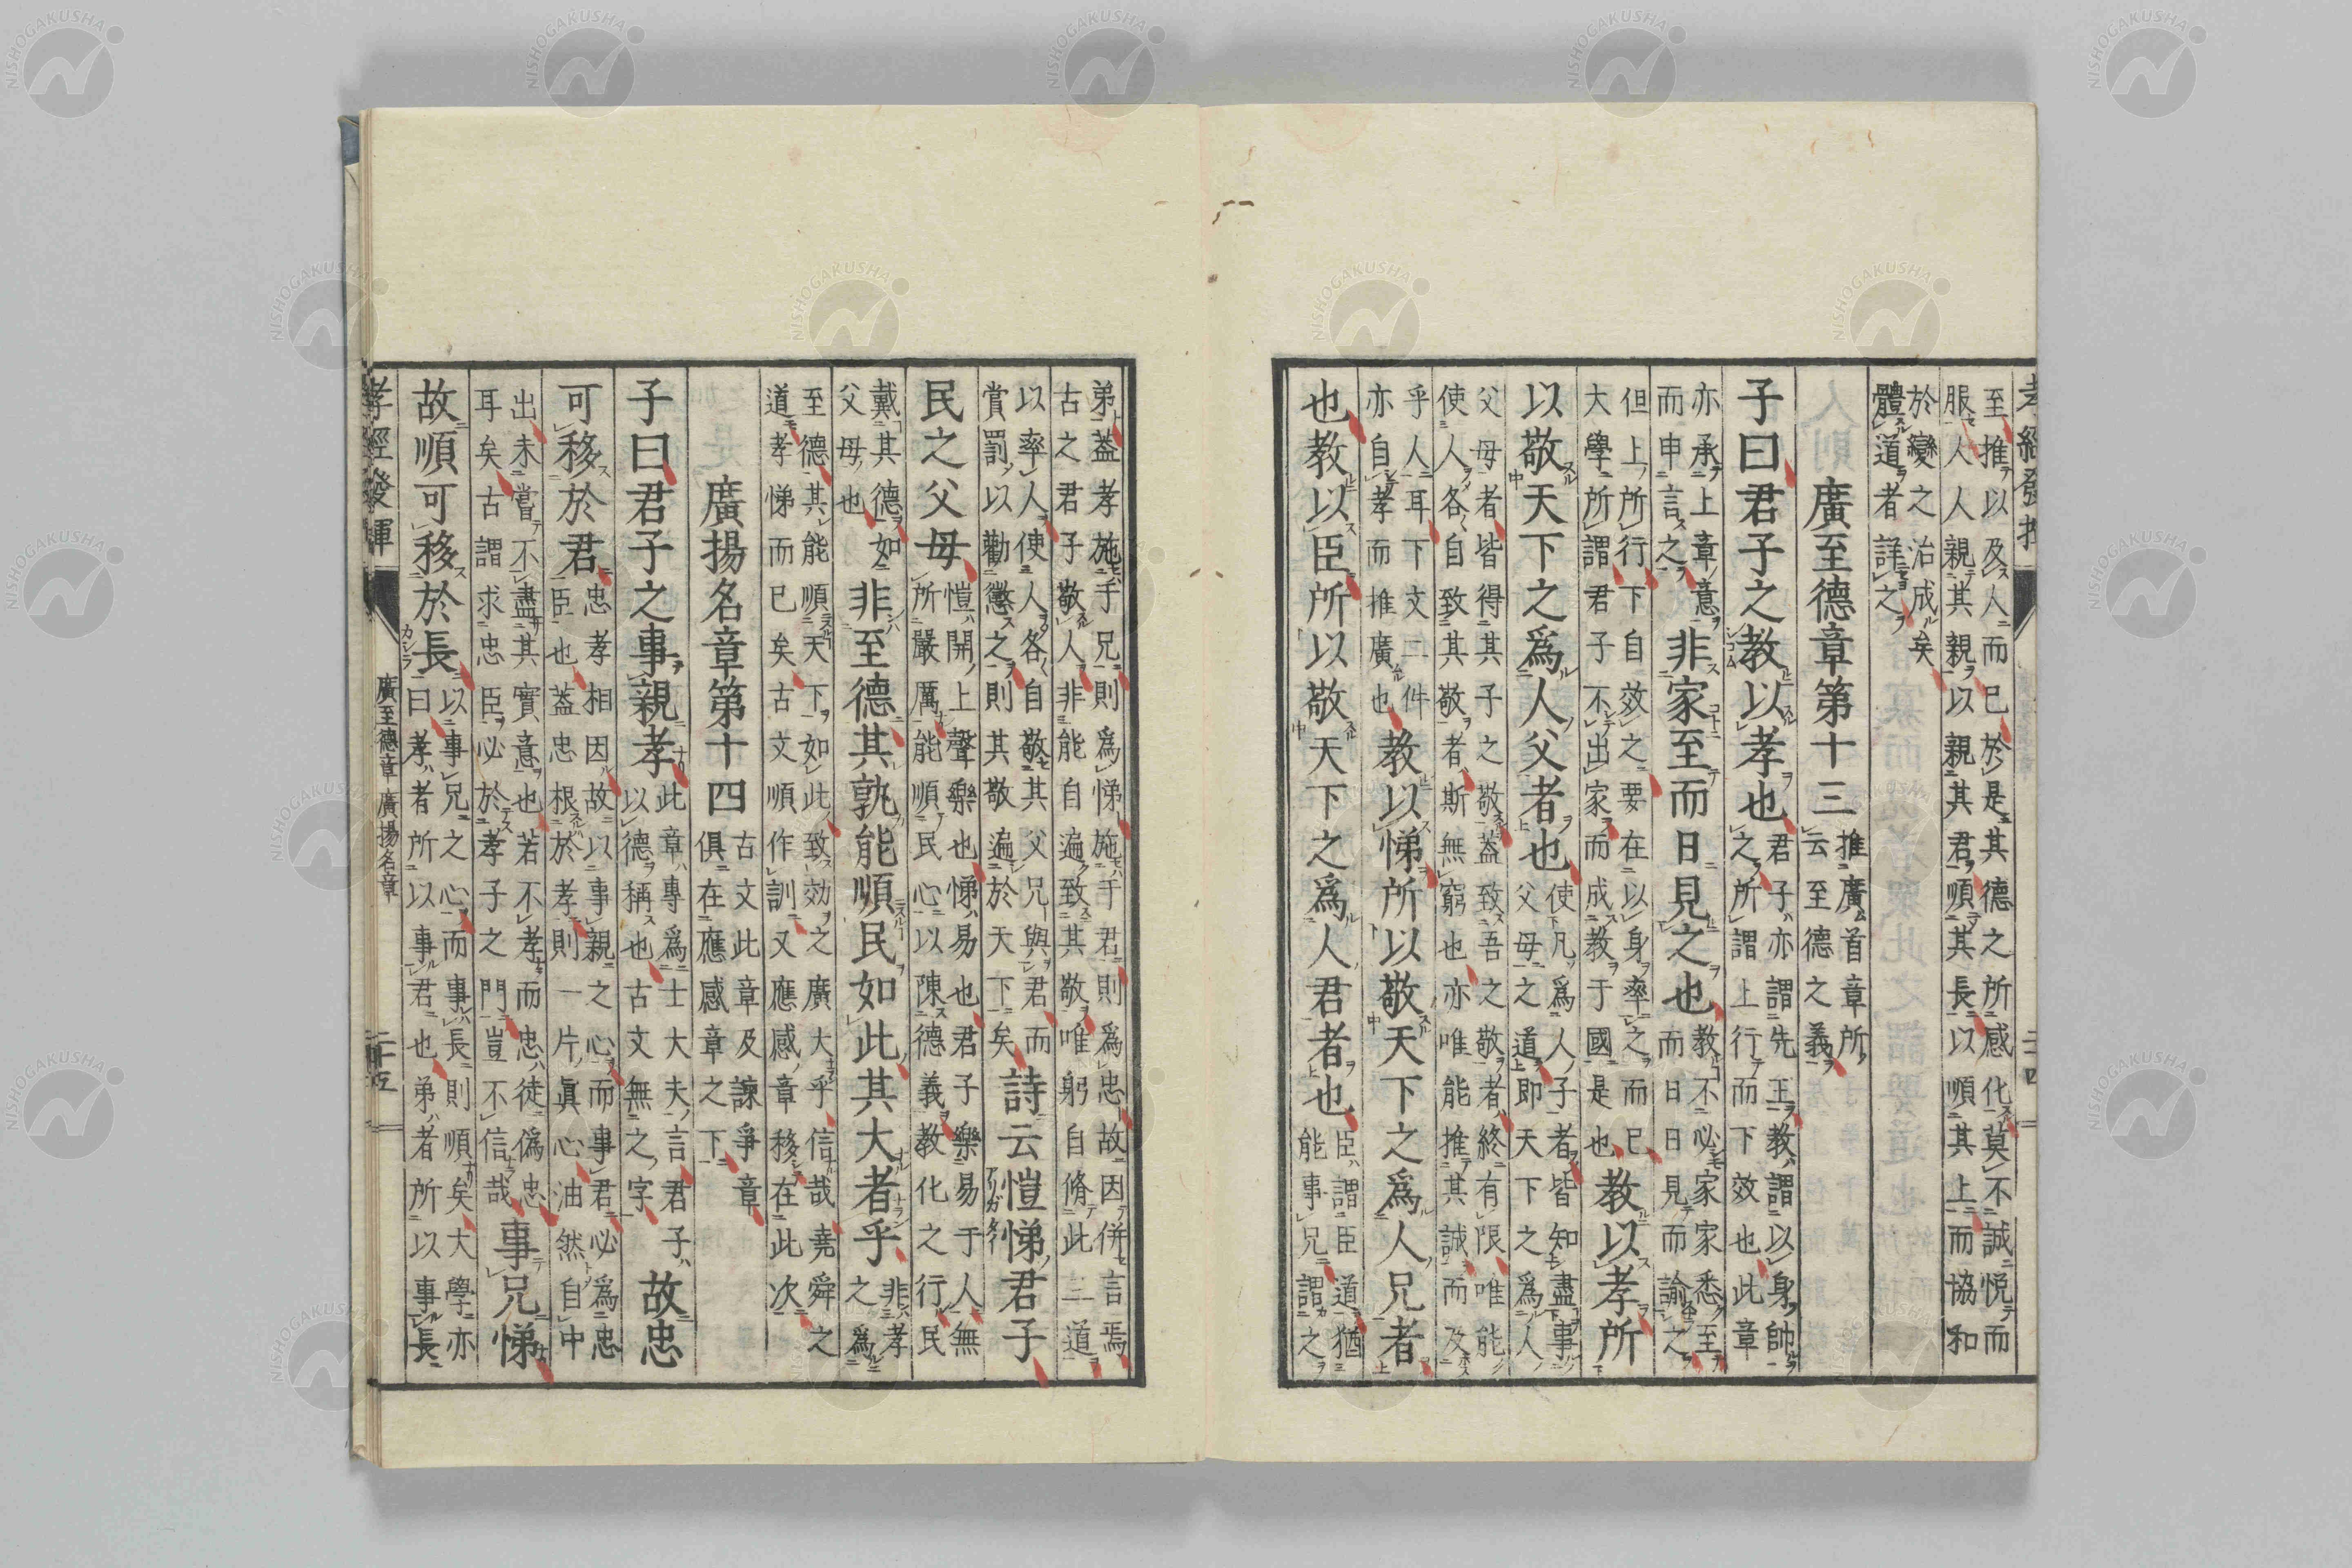 至推以及人而已於是其德之所感化莫不誠悅而
服人人親其親以親其君順其長以順其上而協和
於變之治成矣
體道者詳之
廣至德章第十三
推廣首章所
云至德之義
子曰君子之教以孝也
君子亦謂先王教謂以身帥
之所謂上行而下效也此章
亦承上章意
而申言之
非家至而日見之也
教不必家家悉至
而日日見而諭之
但上所行下自效之要在以身率之而已
大學所謂君子不出家而成教于國是也
教以孝所
以敬天下之爲人父者也
使凡爲人子者皆知盡事
父母之道即天下之爲人
父母者皆得其子之敬蓋致吾之敬者終有限唯能
使人各自致其敬者斯無窮也亦唯能推其誠而及
乎人耳下文二件
亦自孝而推廣也
教以悌所以敬天下之爲人兄者
也教以臣所以敬天下之爲人君者也
臣謂臣道猶
能事兄謂之
弟蓋孝施乎兄則爲悌施于君則爲忠故因併言焉
古之君子敬人非能自遍致其敬唯躬自脩此三道
以率人使人各自敬其父兄與君而
賞罰以勸懲之則其敬遍於天下矣
詩云愷悌君子
民之父母
愷開上聲樂也悌易也君子樂易于人無
所嚴厲能順民心以陳德義教化之行民
戴其德如
父母也
非至德其孰能順民如此其大者乎
非孝
之爲
至德其能順天下如此致効之廣大乎信哉堯舜之
道孝悌而已矣古文順作訓又應感章移在此次
廣揚名章第十四
古文此章及諫爭章
俱在應感章之下
子曰君子之事親孝
此章專爲士大夫言君子
以德稱也古文無之字
故忠
可移於君
忠孝相因故以事親之心而事君必爲忠
臣也蓋忠根於孝則一片眞心油然自中
出未嘗不盡其實意也若不孝而忠徒偽忠
耳矣古謂求忠臣必於孝子之門豈不信哉
事兄悌
故順可移於長
以事兄之心而事長則順矣大學亦
曰孝者所以事君也弟者所以事長
孝經發揮
廣至德章 廣揚名章
二十五